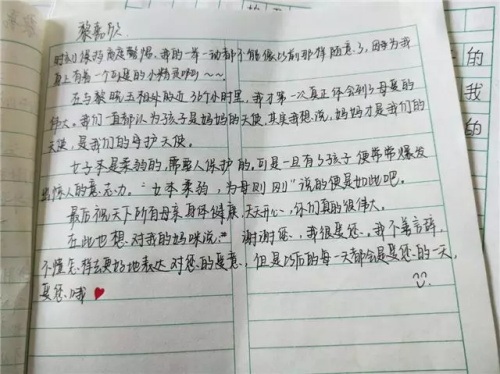 黎嘉欣
时刻保持高度警惕，我的一举一动都不能像以前那样随意了，因为我
身上有着一个可爱的小精灵呀～～
在与黎皖玉相处的近36个小时里，我才第一次真正体会到母爱的
伟大。我们一直都认为孩子是妈妈的天使，其实我想说，妈妈才是我们的
天使，是我们的守护天使。
女子本是柔弱的，需要人保护的，可是一旦有了孩子便常常爆发
出惊人的意志力。“女本柔弱，为母则刚”说的便是如此吧。
最后祝天下所有母亲身体健康，天天开心，你们真的很伟大。
在此也想对我的妈咪说：“谢谢您，我很爱您。我不善言辞，
不懂怎样去更好地表达对您的爱意，但是以后的每一天都会是爱您的一天，
爱您哦
的
我
的